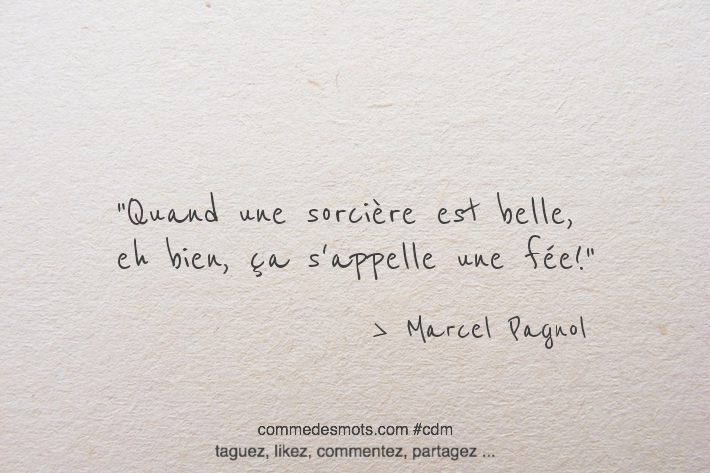 "Quand une sorcière est belle,
eh bien, ça s'appelle une fée!"
> Marcel Pagnol
commedesmots.com #cdm
taguez, likez, commentez, partagez ...